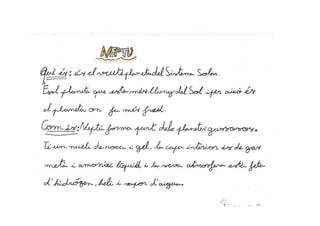 NEPTÚ
Què és: és el vuitè planeta del Sistema Solar.
És el planeta que està més lluny del Sol i per això és
el planeta on fa més fred.
Com és: Neptú forma part dels planetes gassosos.
Té un nucli de roca i gel, la capa interior és de gas
metà i amoníac líquid i la seva atmosfera està feta
d'hidrògen, heli i vapor d'aigua.